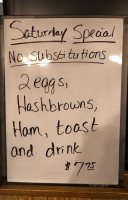 Saturday Special
No substitutions
2 eggs,
Hashbrowns,
Ham, toast
and drink
$ 7.75